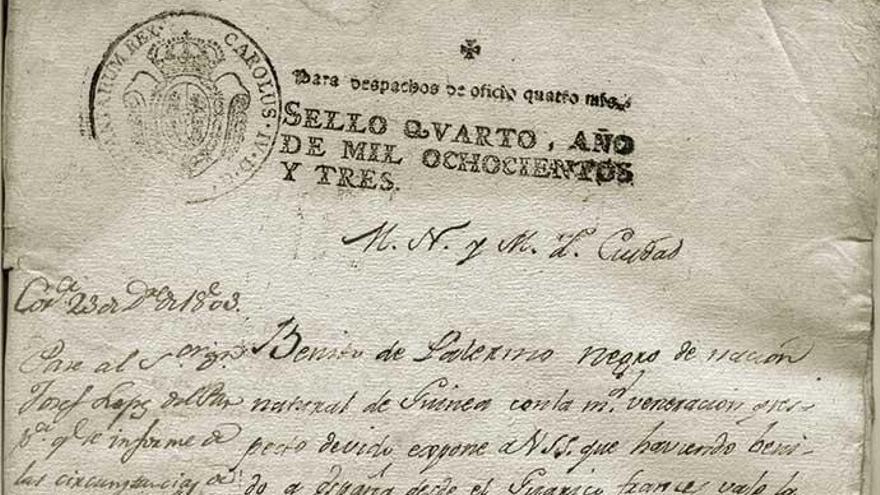 NIARUM REX. CAROLUS · IV · D · G ·
Para despachos de oficio quatro mrs.
SELLO QVARTO, AÑO
DE MIL OCHOCIENTOS
Y TRES.
M. N. y M. L. Ciudad
Corª 23 de Dre de 1803.
Pase al Sor
Josef Lopez del
pª qe informe de
las circunstancias de
Benito de Palermo negro de nación
natural de Guinea con la mor veneracion y res-
pecto devido expone a VSS. que haviendo beni-
do a españa desde el Guarico frances vajo la